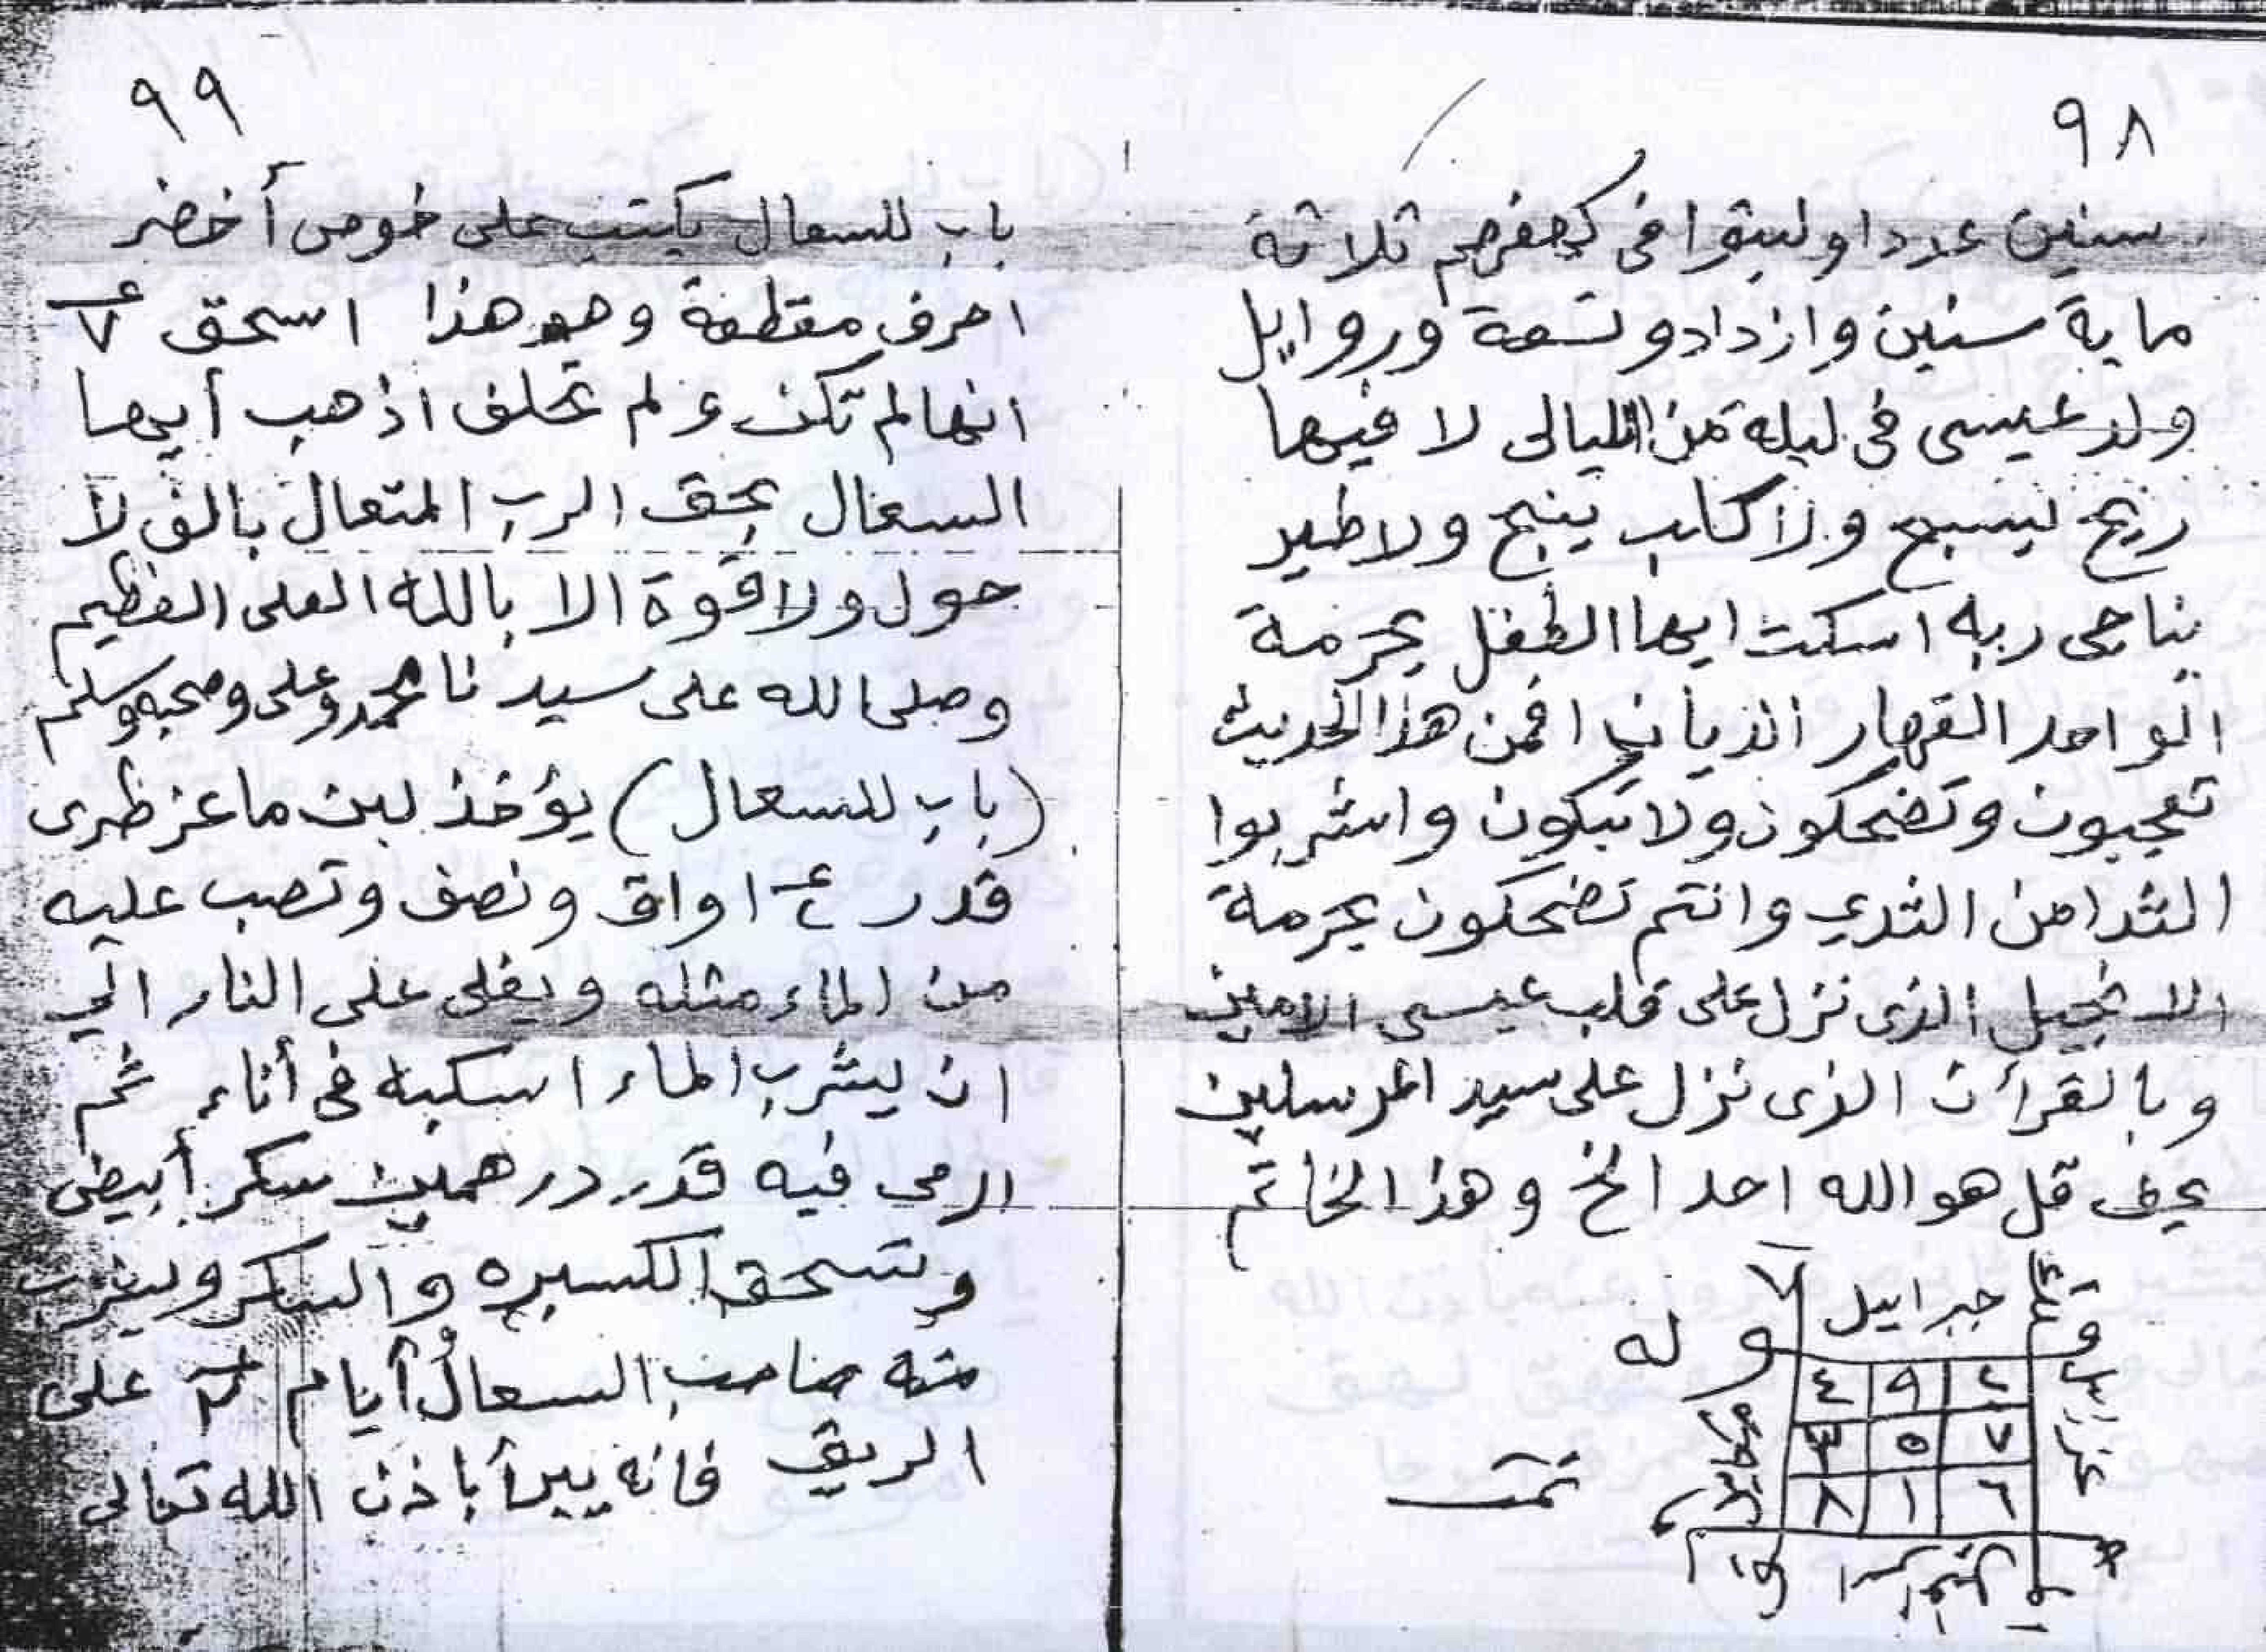 ٩٨
سنين عددا ولبثوا فى كهفهم ثلاثة
ماية سنين وازدادو تسعة وروايل
ولد عيسى فى ليلة من الليالى لا فيها
ريح يسبح ولا كلب ينبح ولا طير
يناجى ربه اسكت ايها الطفل بحرمة
الواحد القهار الديان افمن هذا الحديث
تعجبون وتضحكون ولا تبكون واشربوا
الثدا من الثدي وانتم تضحكون بحرمة
الانجيل الذى نزل على قلب عيسى الامين
وبالقرأن الذى نزل على سيد المرسلين
بحق قل هو الله احد الخ وهذا الخاتم
جبرائيل
وله
٤ ٩ ٢
٣ ٥ ٧
٨ ١ ٦
عزرائيل
ميكائيل
تمت
٩٩
باب للسعال يكتب على خوص أخضر
احرف مقطعة وهو هذا اسحق ٧
انها لم تكن ولم تخلف اذهب أيها
السعال بحق الرب المتعال بالف لا
حول ولا قوة الا بالله العلى العظيم
وصلى الله على سيدنا محمد وعلى وصحبه وسلم
(باب للسعال) يؤخذ لبن ماعز طرى
قدر ٤ اواق ونصف وتصب عليه
من الماء مثله ويغلى على النار الي
ان يشرب الماء اسكبه فى أناء ثم
ارمى فيه قدر درهمين سكر أبيض
وتسحق الكسبره والسكر ويشرب
منه صاحب السعال أيام ٣ على
الريق فانه يبرأ باذن الله تعالى